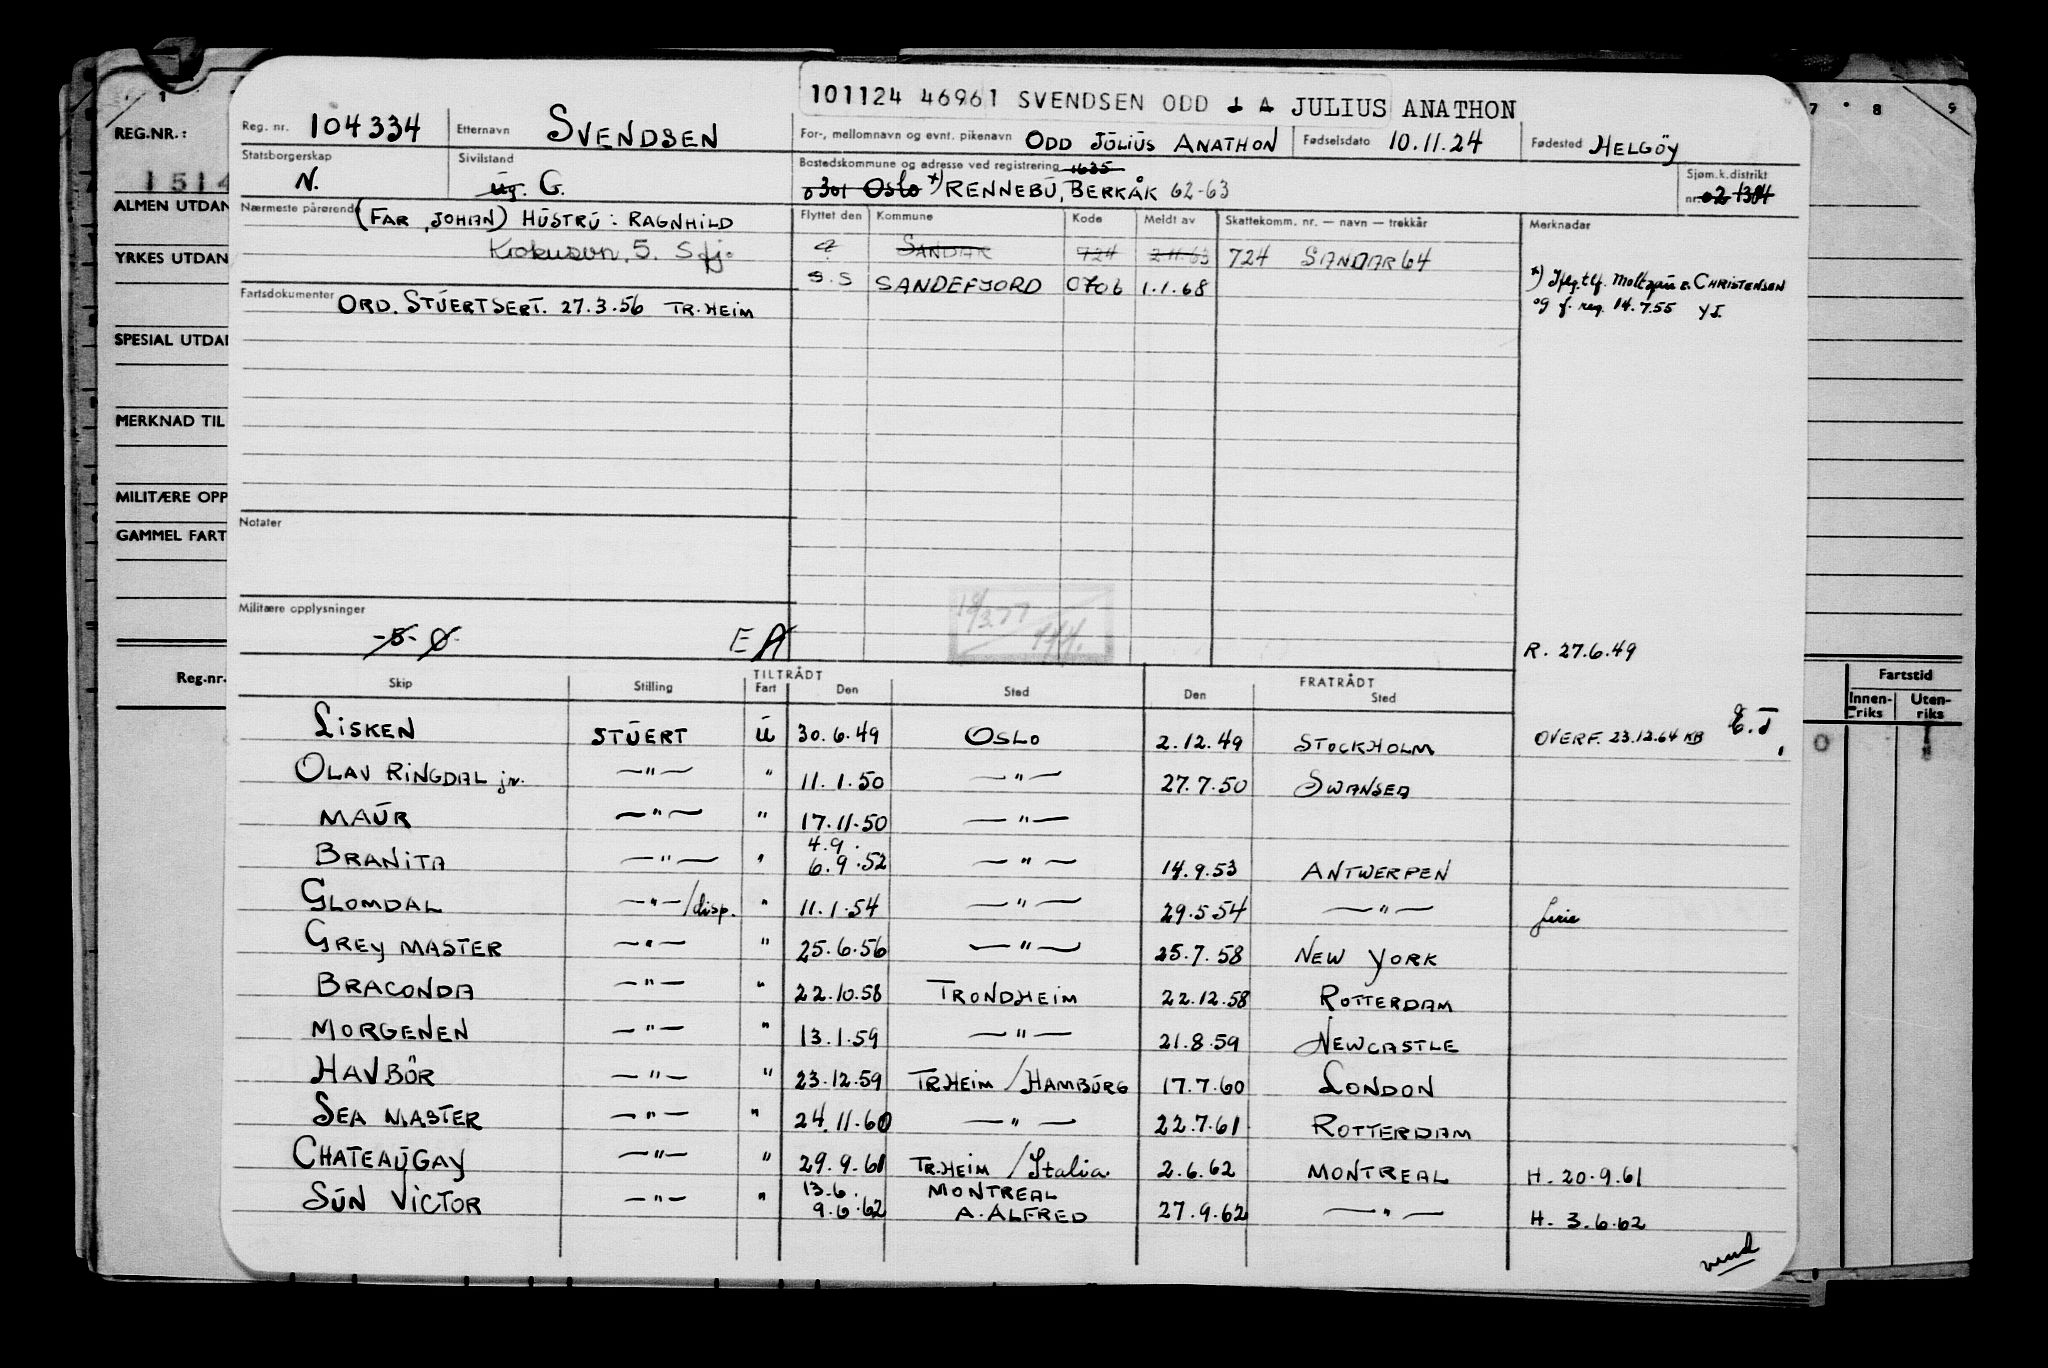 101124 46961 SVENDSEN ODD J A JULIUS ANATHON
REG.NR.:
1514
ALMEN UTDAN
YRKES UTDAN
SPESIAL UTDA
MERKNAD TIL
MILITÆRE OPP
GAMMEL FART
Reg.nr.
7 8 9
Fartstid
Innen-riks Uten-riks
Reg. nr. 104334 Etternavn SVENDSEN For-, mellomnavn og evnt. pikenavn ODD JÚLIÚS ANATHON Fødselsdato 10.11.24 Fødested HELGÖY
Statsborgerskap N. Sivilstand Ug. G. Bostedskommune og adresse ved registrering 1635
0301 OSLO *) RENNEBÚ, BERKÅK 62-63 Sjøm.k.distrikt nr. 02 1304
Nærmeste pårørende (FAR, JOHAN) HÚSTRÚ: RAGNHILD
Flyttet den Kommune Kode Meldt av Skattekomm. nr. — navn — trekkår Merknadar
5. Sfj.
? SANDAR 724 2.11.63 724 SANDAR 64
S.S SANDEFJORD 0706 1.1.68
*) Iflg. tlf. CHRISTENSEN
og f. reg. 14.7.55 YI.
Fartsdokumenter ORD. STÚERTSERT. 27.3.56 TR.HEIM
Notater
Militære opplysninger
-5- Ø E A
R. 27.6.49
Skip Stilling TILTRÅDT Fart Den Sted FRATRÅDT Den Sted
LISKEN STÚERT Ú 30.6.49 OSLO 2.12.49 STOCKHOLM OVERF. 23.12.64 KB E.T.
OLAV RINGDAL jr. —"— " 11.1.50 —"— 27.7.50 SWANSEA
MAÚR —"— " 17.11.50 —"—
BRANITA —"— " 4.9. 6.9.52 —"— 14.9.53 ANTWERPEN
GLOMDAL —"—/disp. " 11.1.54 —"— 29.5 54 —"— ferie
GREY MASTER —"— " 25.6.56 —"— 25.7.58 NEW YORK
BRACONDA —"— " 22.10.58 TRONDHEIM 22.12.58 ROTTERDAM
MORGENEN —"— " 13.1.59 —"— 21.8.59 NEWCASTLE
HAVBÖR —"— " 23.12.59 TR.HEIM/HAMBÚRG 17.7.60 LONDON
SEA MASTER —"— " 24.11.60 —"— 22.7.61 ROTTERDAM
CHATEAÚGAY —"— " 29.9.61 TR.HEIM/Italia 2.6.62 MONTREAL H. 20.9.61
SÚN VICTOR —"— " 13.6. 9.6.62 MONTREAL A. ALFRED 27.9.62 —"— H. 3.6.62
vend